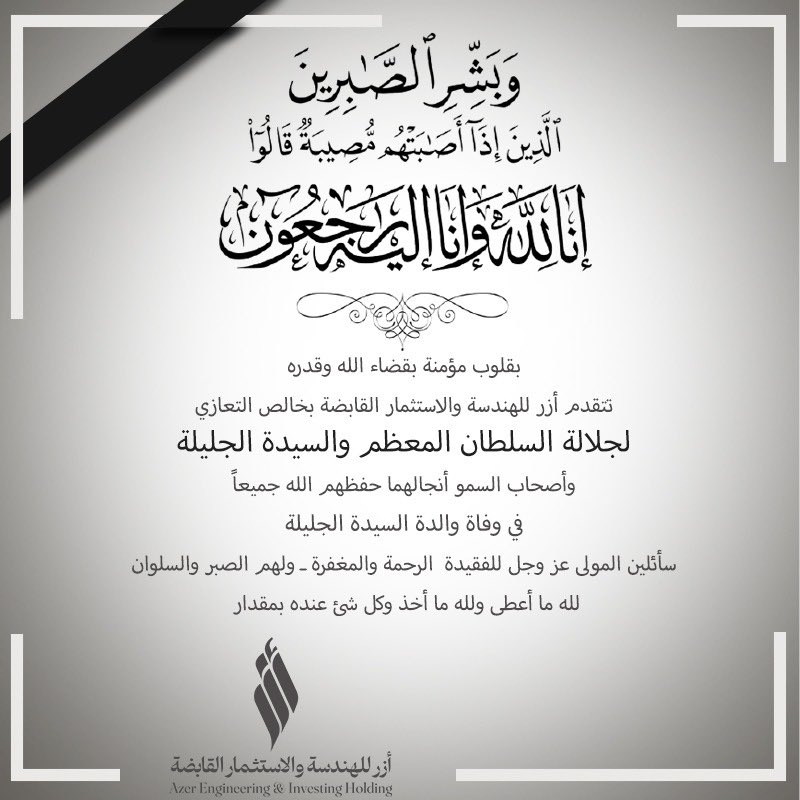 وَبَشِّرِ ٱلصَّـٰبِرِينَ
ٱلَّذِينَ إِذَآ أَصَـٰبَتْهُم مُّصِيبَةٌ قَالُوٓا۟
إِنَّا لِلَّٰهِ وَإِنَّا إِلَيْهِ رَٰجِعُونَ
بقلوب مؤمنة بقضاء الله وقدره
تتقدم أزر للهندسة والاستثمار القابضة بخالص التعازي
لجلالة السلطان المعظم والسيدة الجليلة
وأصحاب السمو أنجالهما حفظهم الله جميعاً
في وفاة والدة السيدة الجليلة
سأئلين المولى عز وجل للفقيدة الرحمة والمغفرة ـ ولهم الصبر والسلوان
لله ما أعطى ولله ما أخذ وكل شئ عنده بمقدار
أزر للهندسة والاستثمار القابضة
Azer Engineering & Investing Holding